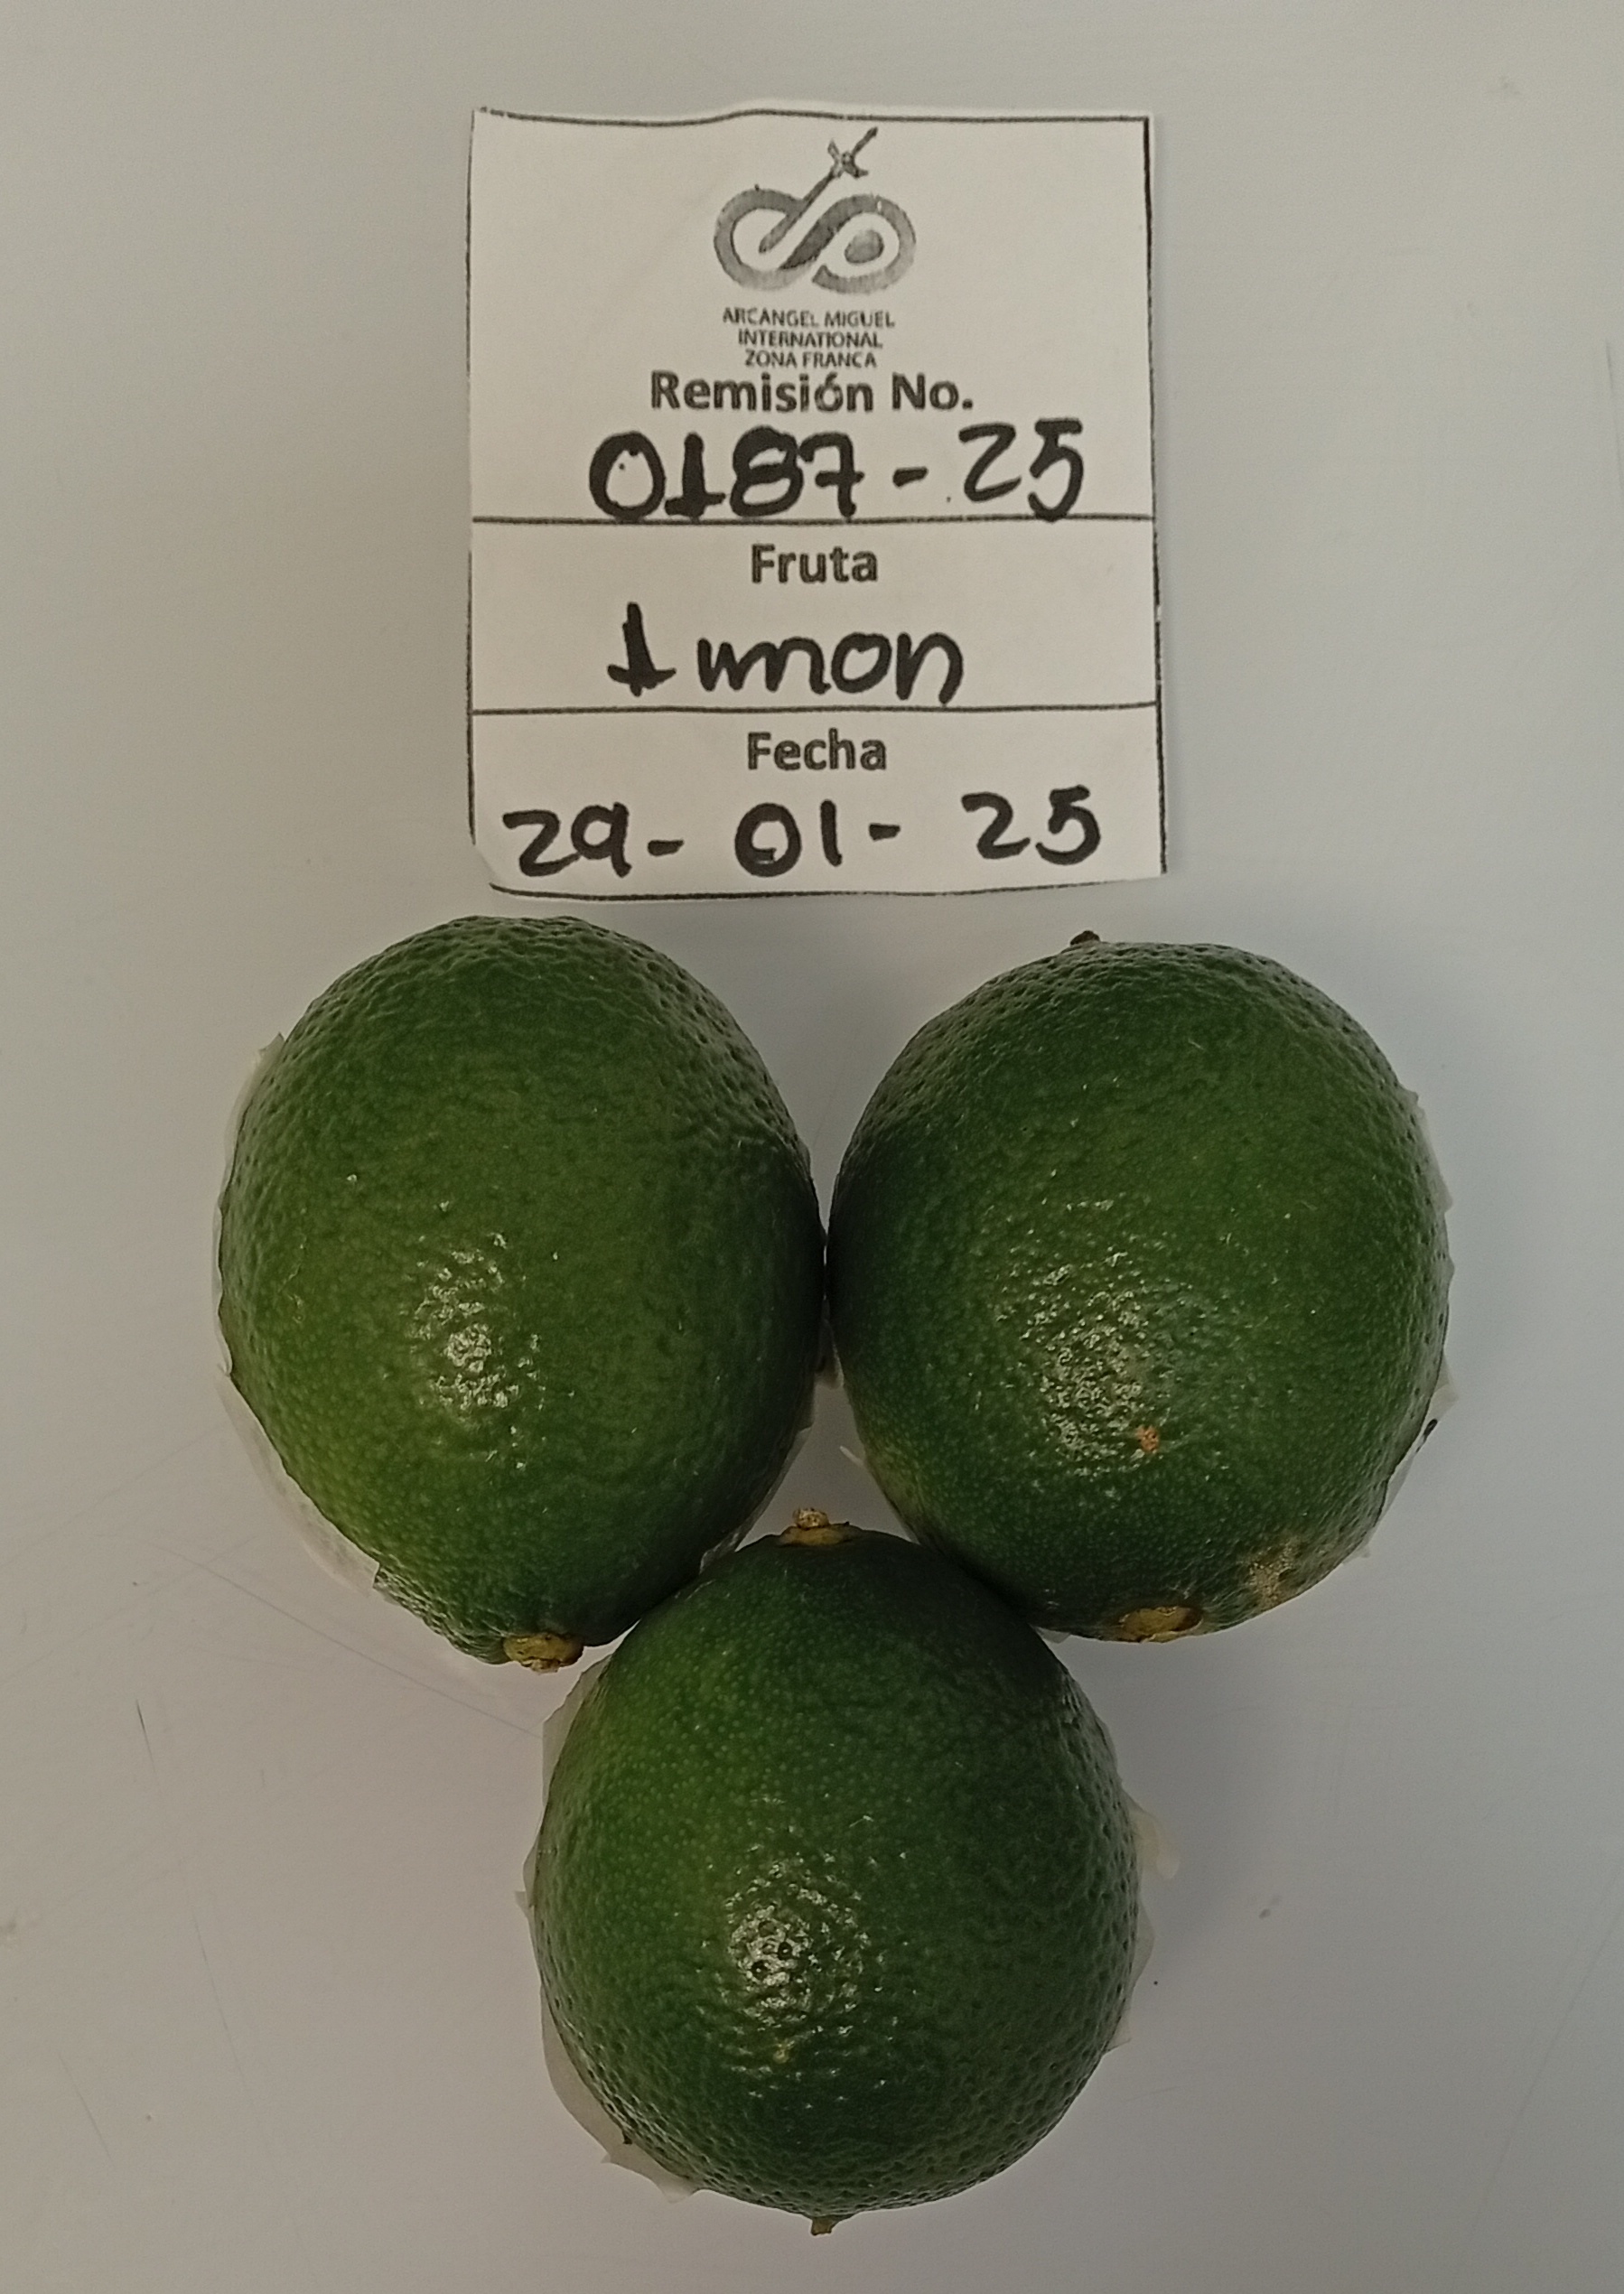 ARCANGEL MIGUEL
INTERNATIONAL
ZONA FRANCA
Remisión No.
0187-25
Fruta
Limon
Fecha
29-01-25